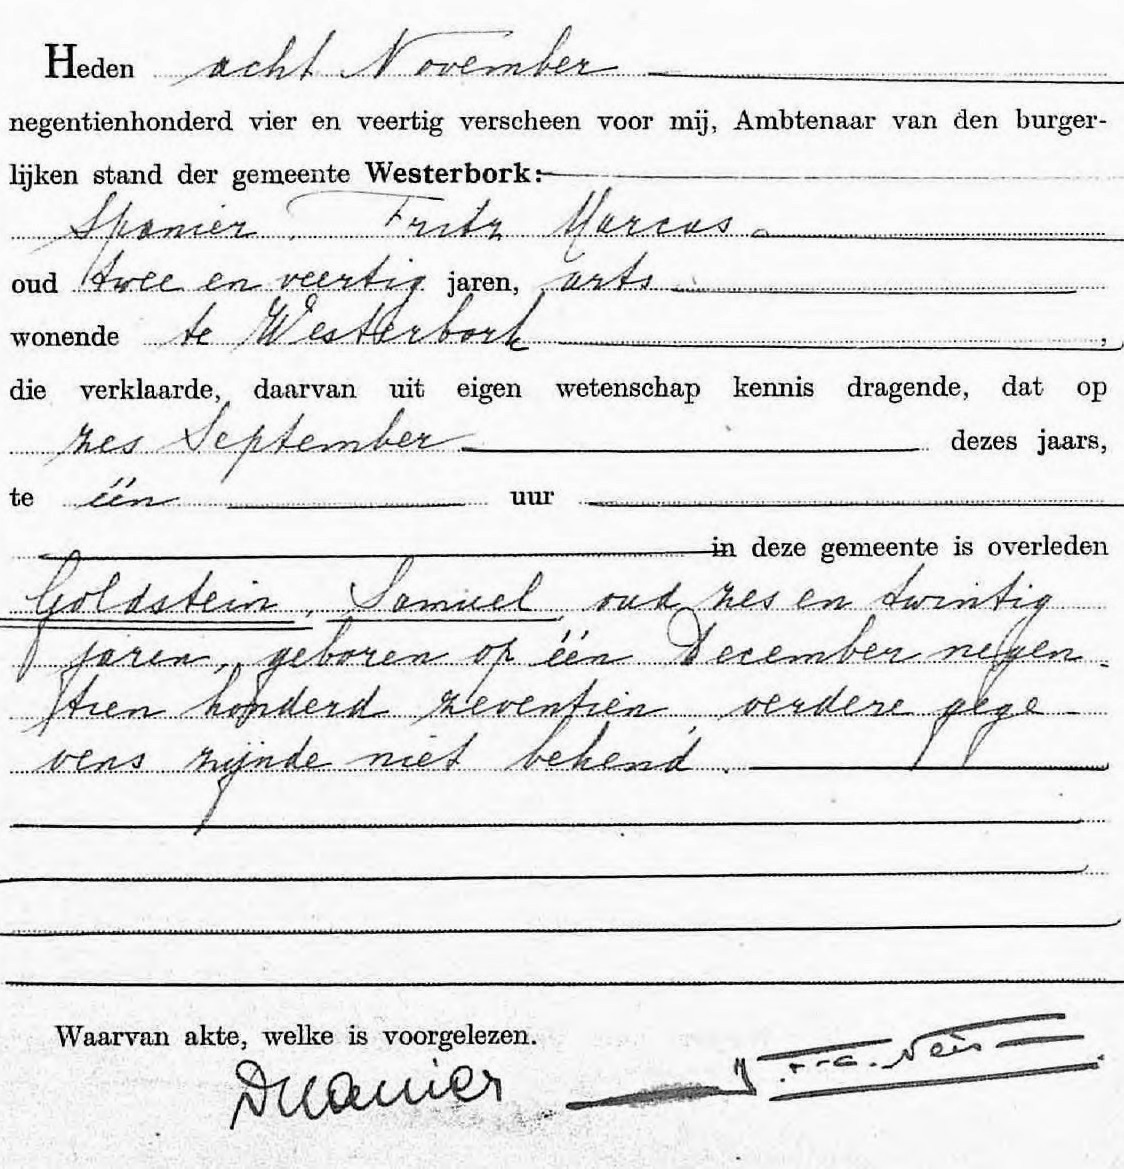 Heden acht November
negentienhonderd vier en veertig verscheen voor mij, Ambtenaar van den burger-
lijken stand der gemeente Westerbork:
Spanier, Fritz Marcus
oud twee en veertig jaren, arts
wonende te Westerbork,
die verklaarde, daarvan uit eigen wetenschap kennis dragende, dat op
zes September dezes jaars,
te één uur
in deze gemeente is overleden
Goldstein, Samuel oud zes en twintig
jaren, geboren op één December negen-
tien honderd zeventien, verdere gege-
vens zijnde niet bekend.
Waarvan akte, welke is voorgelezen.
Spanier